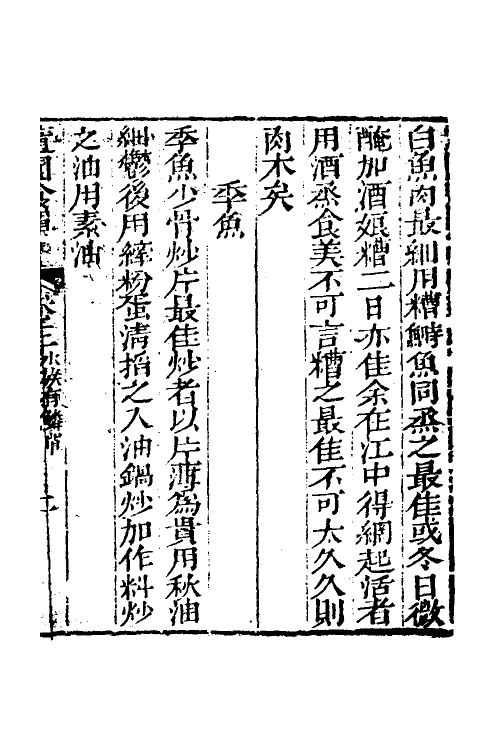 白魚肉最細用糟鰣魚同蒸之最佳或冬日微
醃加酒娘糟二日亦佳余在江中得網起活者
用酒蒸食美不可言糟之最佳不可太久久則
肉木矣
季魚
季魚少骨炒片最佳炒者以片薄為貴用秋油
細鬱後用縴粉蛋清搯之入油鍋炒加作料炒
之油用素油
水族有鱗單